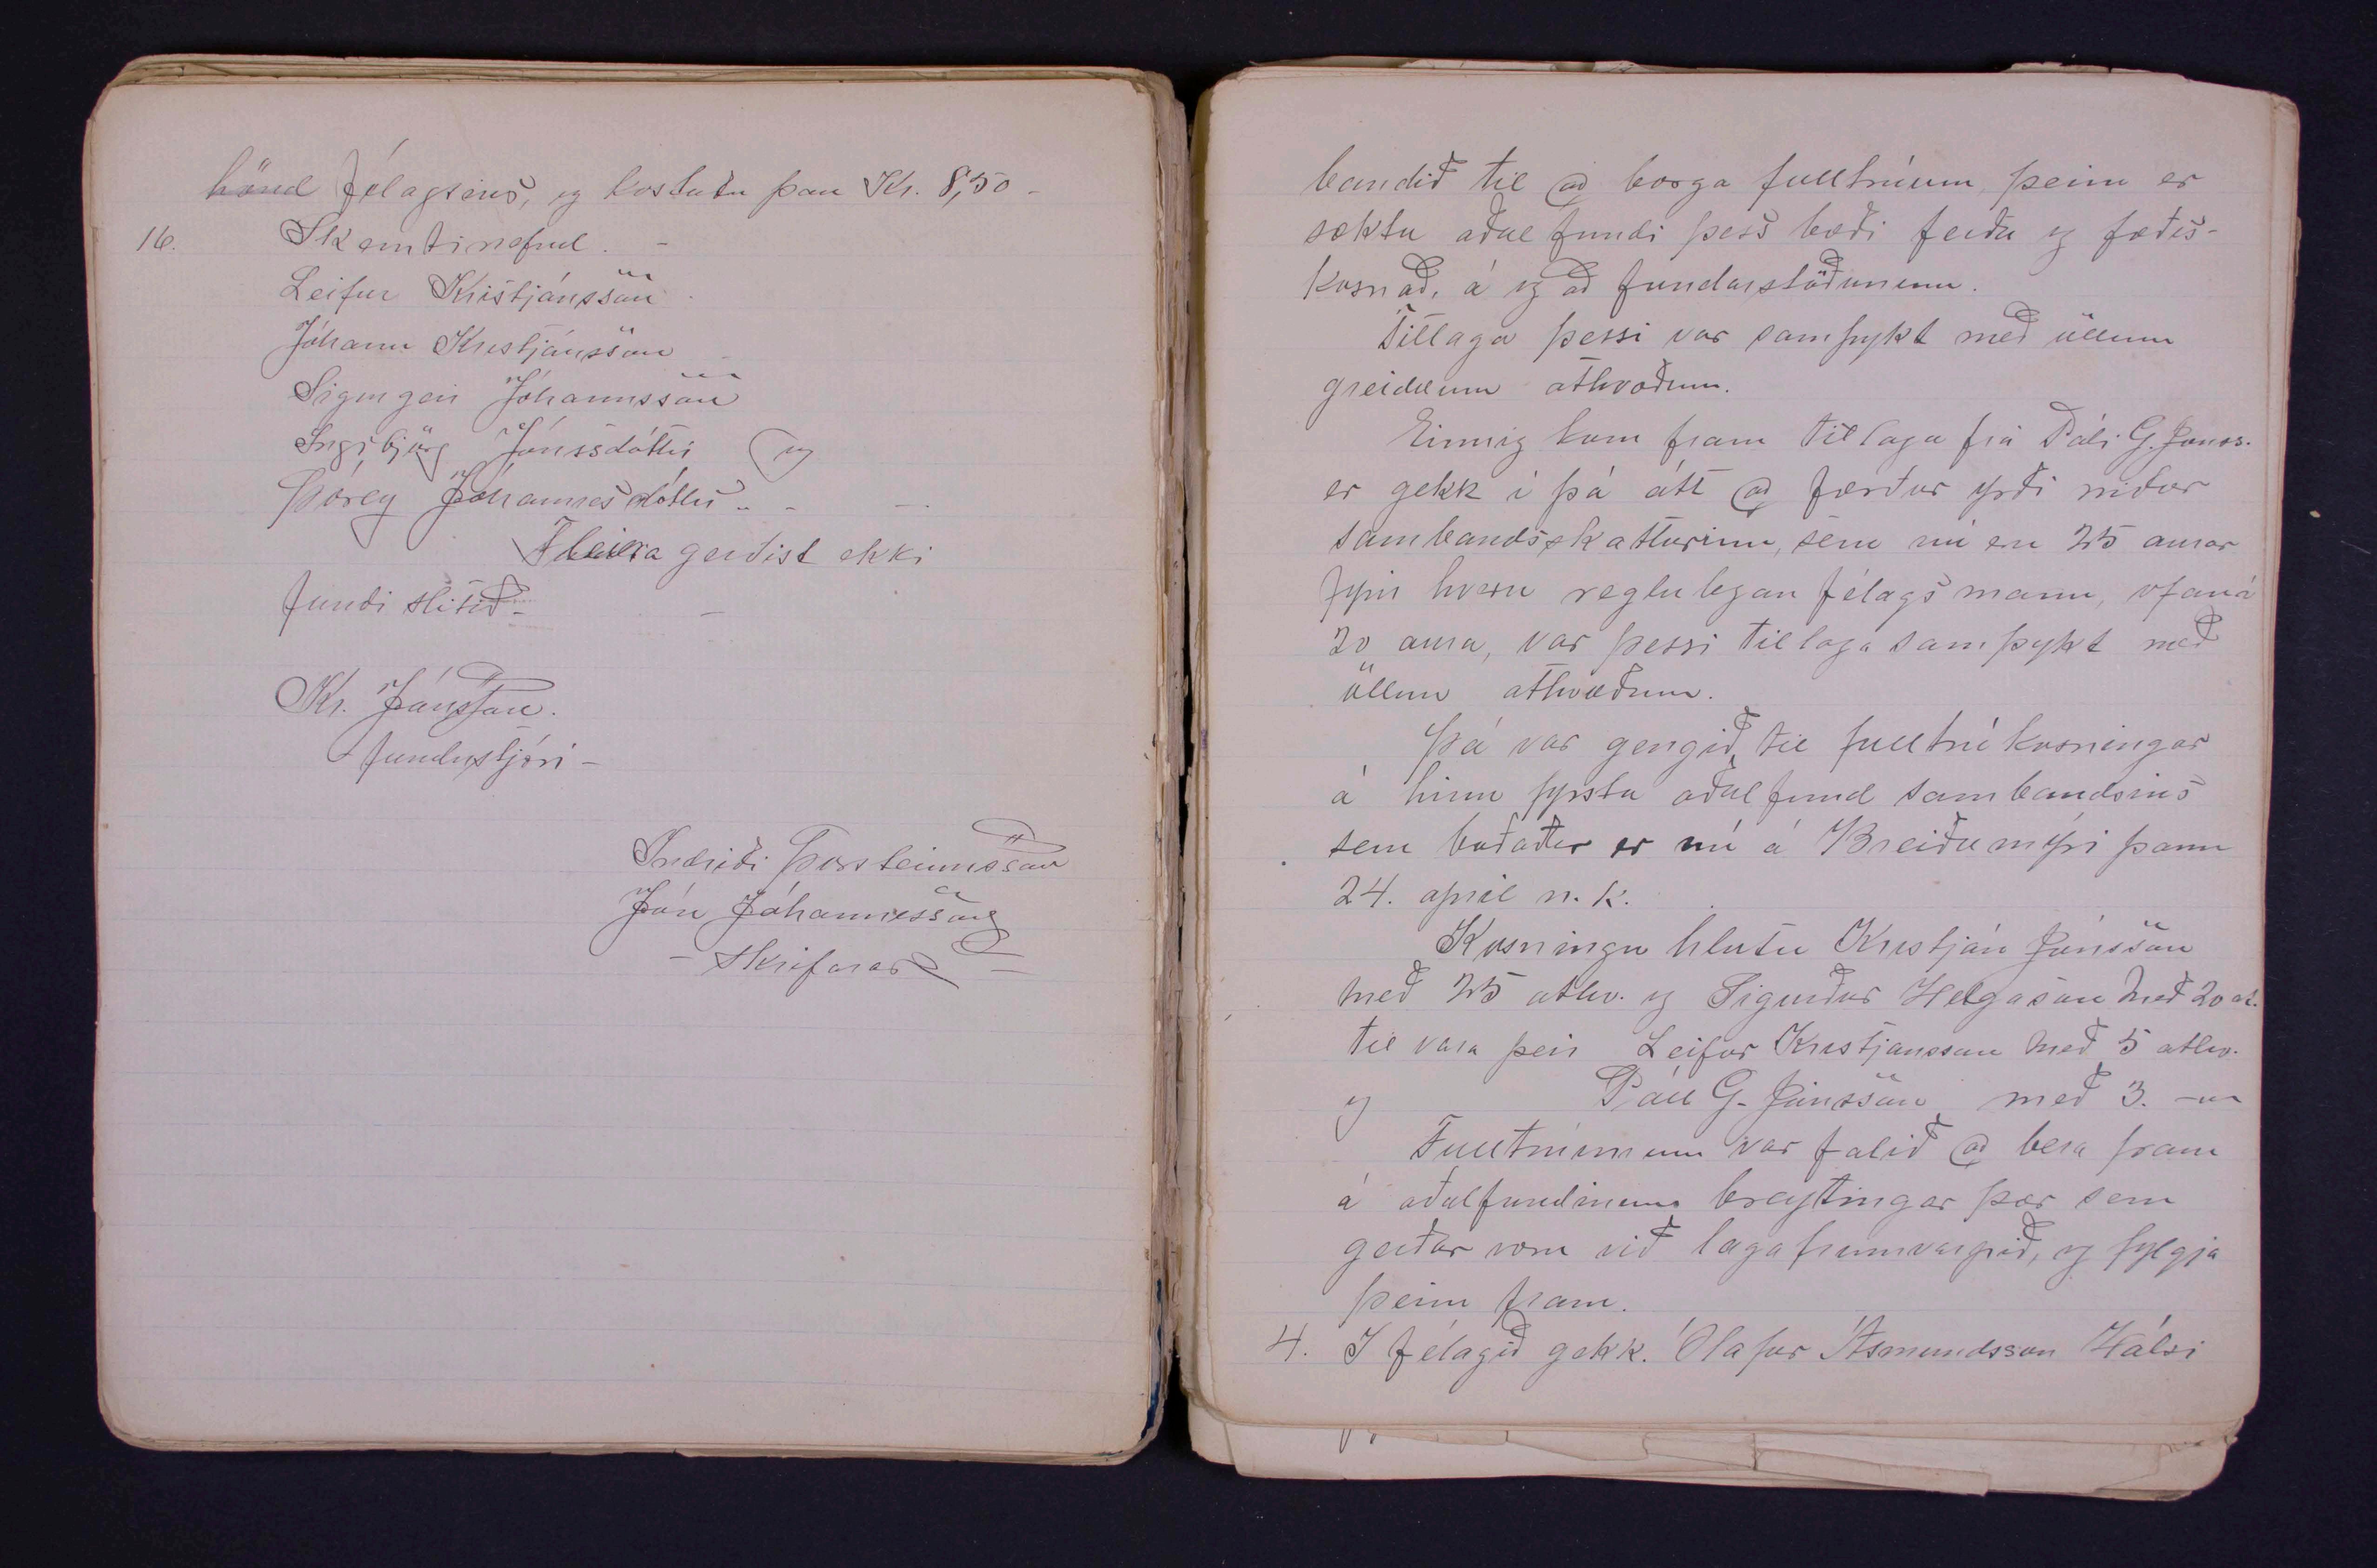 hönd félagsins, og kostuðu þau Kr. 8,50 -
16. Skemtinefnd. -
Leifur Kristjánsson
Jóhann Kristjánsson
Sigurgeir Jóhannsson
Ingibjörg Jónssdóttir og
Þórey Jóhannesdóttir
Fleira gerðist ekki
fundi slitið -
Kr. Jónsson.
- fundustjóri -
Indriði Þorsteinnsson
Jón Jóhannesson
- Skrifarar -
bandið til að borga fulltrúum, þeim er
sæktu aðal fundi þess bæði ferða og fæðis-
kosnað, á og að fundarstöðunum.
Tillaga þessi var samþykt með öllum
greiddum atkvæðum.
Einnig kom fram tillaga frá Páli G. Jónss.
er gekk í þá átt að færður yrði niður
sambandsskatturinn, sem nú eru 25 aurar
fyrir hvern reglulegan félagsmann, ofaná
20 aura, var þessi tillaga samþykt með
öllum atkvæðum.
Þá var gengið til fulltrúkosningar
á hinn fyrsta aðalfund sambandsins
sem boðaður er nú á Breiðumýri þann
24. apríl n.k.
Kosningu hlutu Kristján Jónsson
með 25 atkv. og Sigurður Helgason með 20 at.
til vara þeir Leifur Kristjansson með 5 atkv.
og Páll G. Jónsson með 3. -"-
Fulltrúunum var falið að bera fram
á aðalfundinum breytingar þær sem
gerðar voru við lagafrumvarpið, og fylgja
þeim fram.
4. I félagið gekk. Ólafur Ásmundsson Hálsi